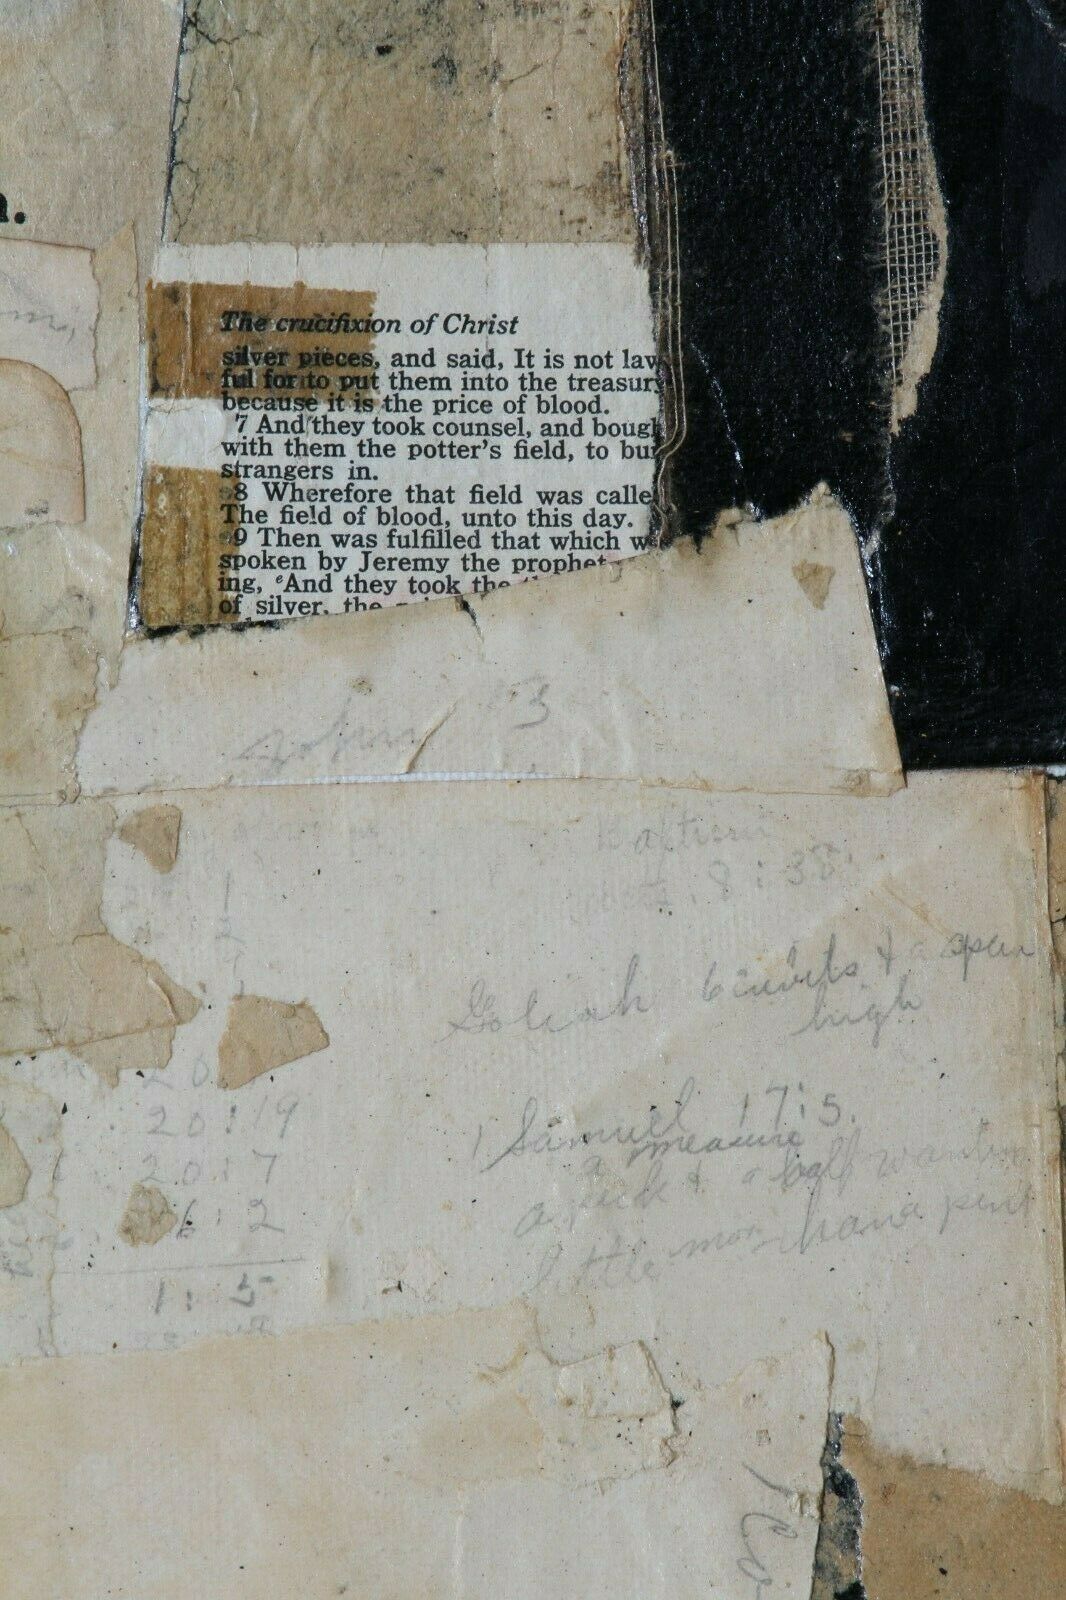 The crucifixion of Christ
silver pieces, and said, It is not law
ful for to put them into the treasury
because it is the price of blood.
7 And they took counsel, and bough
with them the potter's field, to bur
strangers in.
8 Wherefore that field was calle
The field of blood, unto this day.
9 Then was fulfilled that which w
spoken by Jeremy the prophet
ing, eAnd they took the
of silver, the
John 3
8:38
Goliah 6 cubits & a span
high
20:19
1 Samuel 17:5.
a measure
20:7
a peck & a half wantin
6:2
little mor
pint
1:5
1 Co